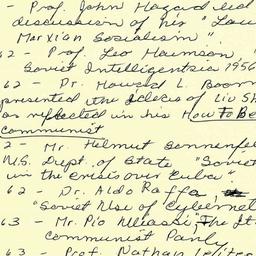 - Prof. John Hazard led
discussion of his "Law
Marxian Socialism".
62 - Prof. Leo Haimson, "
Soviet Intelligentsia 1956
62 - Dr. Howard L. Boorm
presented the Ideas of Liu Sh
as reflected in his How To Be
Communist
2 - Mr. Helmut Sonnenfel
U.S. Dept. of State "Soviet
in the crisis over Cuba".
62 - Dr. Aldo Raffa,
"Soviet Use of Cybernet
63 - Mr. Pio Uliassi, The It
Communist Party
63 - Prof. Nathan Leites